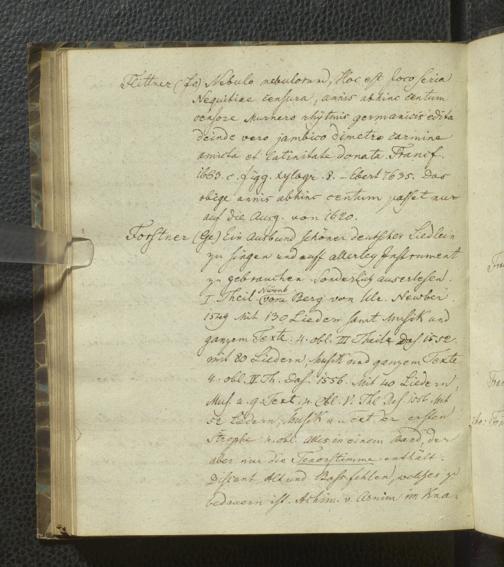 Flittner (Jo) Nebulo nebulonum, Hoc est Joco seria
Nequitiae censura, annis abhinc centum
censore Murnero rhytmis germanicis edita
deinde vero jambico dimetro carmine
amicta et latinitate donata Francf.
1663. c. figg. xylogr. 8. – Ebert 7635. Das
obige annis abhinc centum passet nur
auf die Ausg. von 1620.
Forstner (Ge) Ein Ausbund schöner deutscher Liedlein
zu singen und auff allerley Instrument
zu gebrauchen sonderlich auserlesen.
I Theil Nürnb vom Berg von Ulr. Newber
1549 Mit 130 Liedern samt Musik und
ganzem Texte. 4. obl. III Theile Das. 1552.
mit 80 Liedern, Musik und ganzem Texte
4. obl. II Th. Das. 1556. Mit 40 Liedern,
Mus u. g Text. 4. Obl. V. Thl. Das 1556 Mit
52 Liedern, Musik u Text der ersten
Strophe 4. obl. Alles in einem Band, der
aber nur die Tenorstimme enthält.
Discant Alt und Bass fehlen, welches zu
bedauern ist. Achim. v. Arnim im Kna-